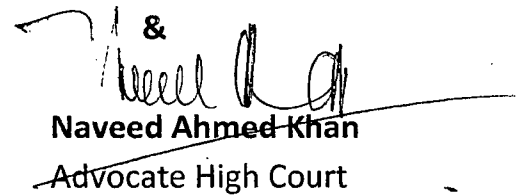 &
Naveed Ahmed Khan
Advocate High Court